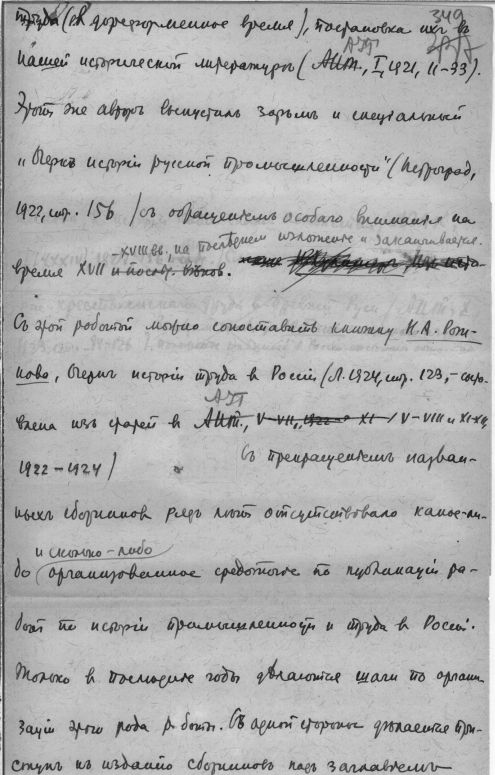 349
труда (въ дореформенное время), постановка ихъ въ
нашей исторической литературѣ (АИТ., I, 1921, 11-33).
АИТ
Этотъ же авторъ выпустилъ затѣмъ и спеціальный
„Очеркъ исторіи русской промышленности" (Петроградъ,
1922, стр. 156) съ обращеніемъ особаго вниманія на
XVIII вв. на послѣднемъ изложеніе и заканчивается.
время XVII и послѣд. вѣковъ.
Съ этой работой можно сопоставить книжку Н.А. Рож-
кова, Очеркъ исторіи труда в Россіи (Л. 1924, стр. 123, - сос-
АИТ
влена изъ статей в АИТ., V-VII, 1922 - XI / V-VIII и XI-XII,
1922-1924) Съ прекращеніемъ назван-
ныхъ сборниковъ рядъ лѣтъ отсутствовало какое-ли-
и сколько-либо
бо организованное средоточіе по публикаціи ра-
ботъ по исторіи промышленности и труда в Россіи.
Только в послѣдніе годы дѣлаются шаги по органи-
заціи этого рода работъ. Съ одной стороны дѣлается при-
ступъ къ изданію сборниковъ подъ заглавіемъ